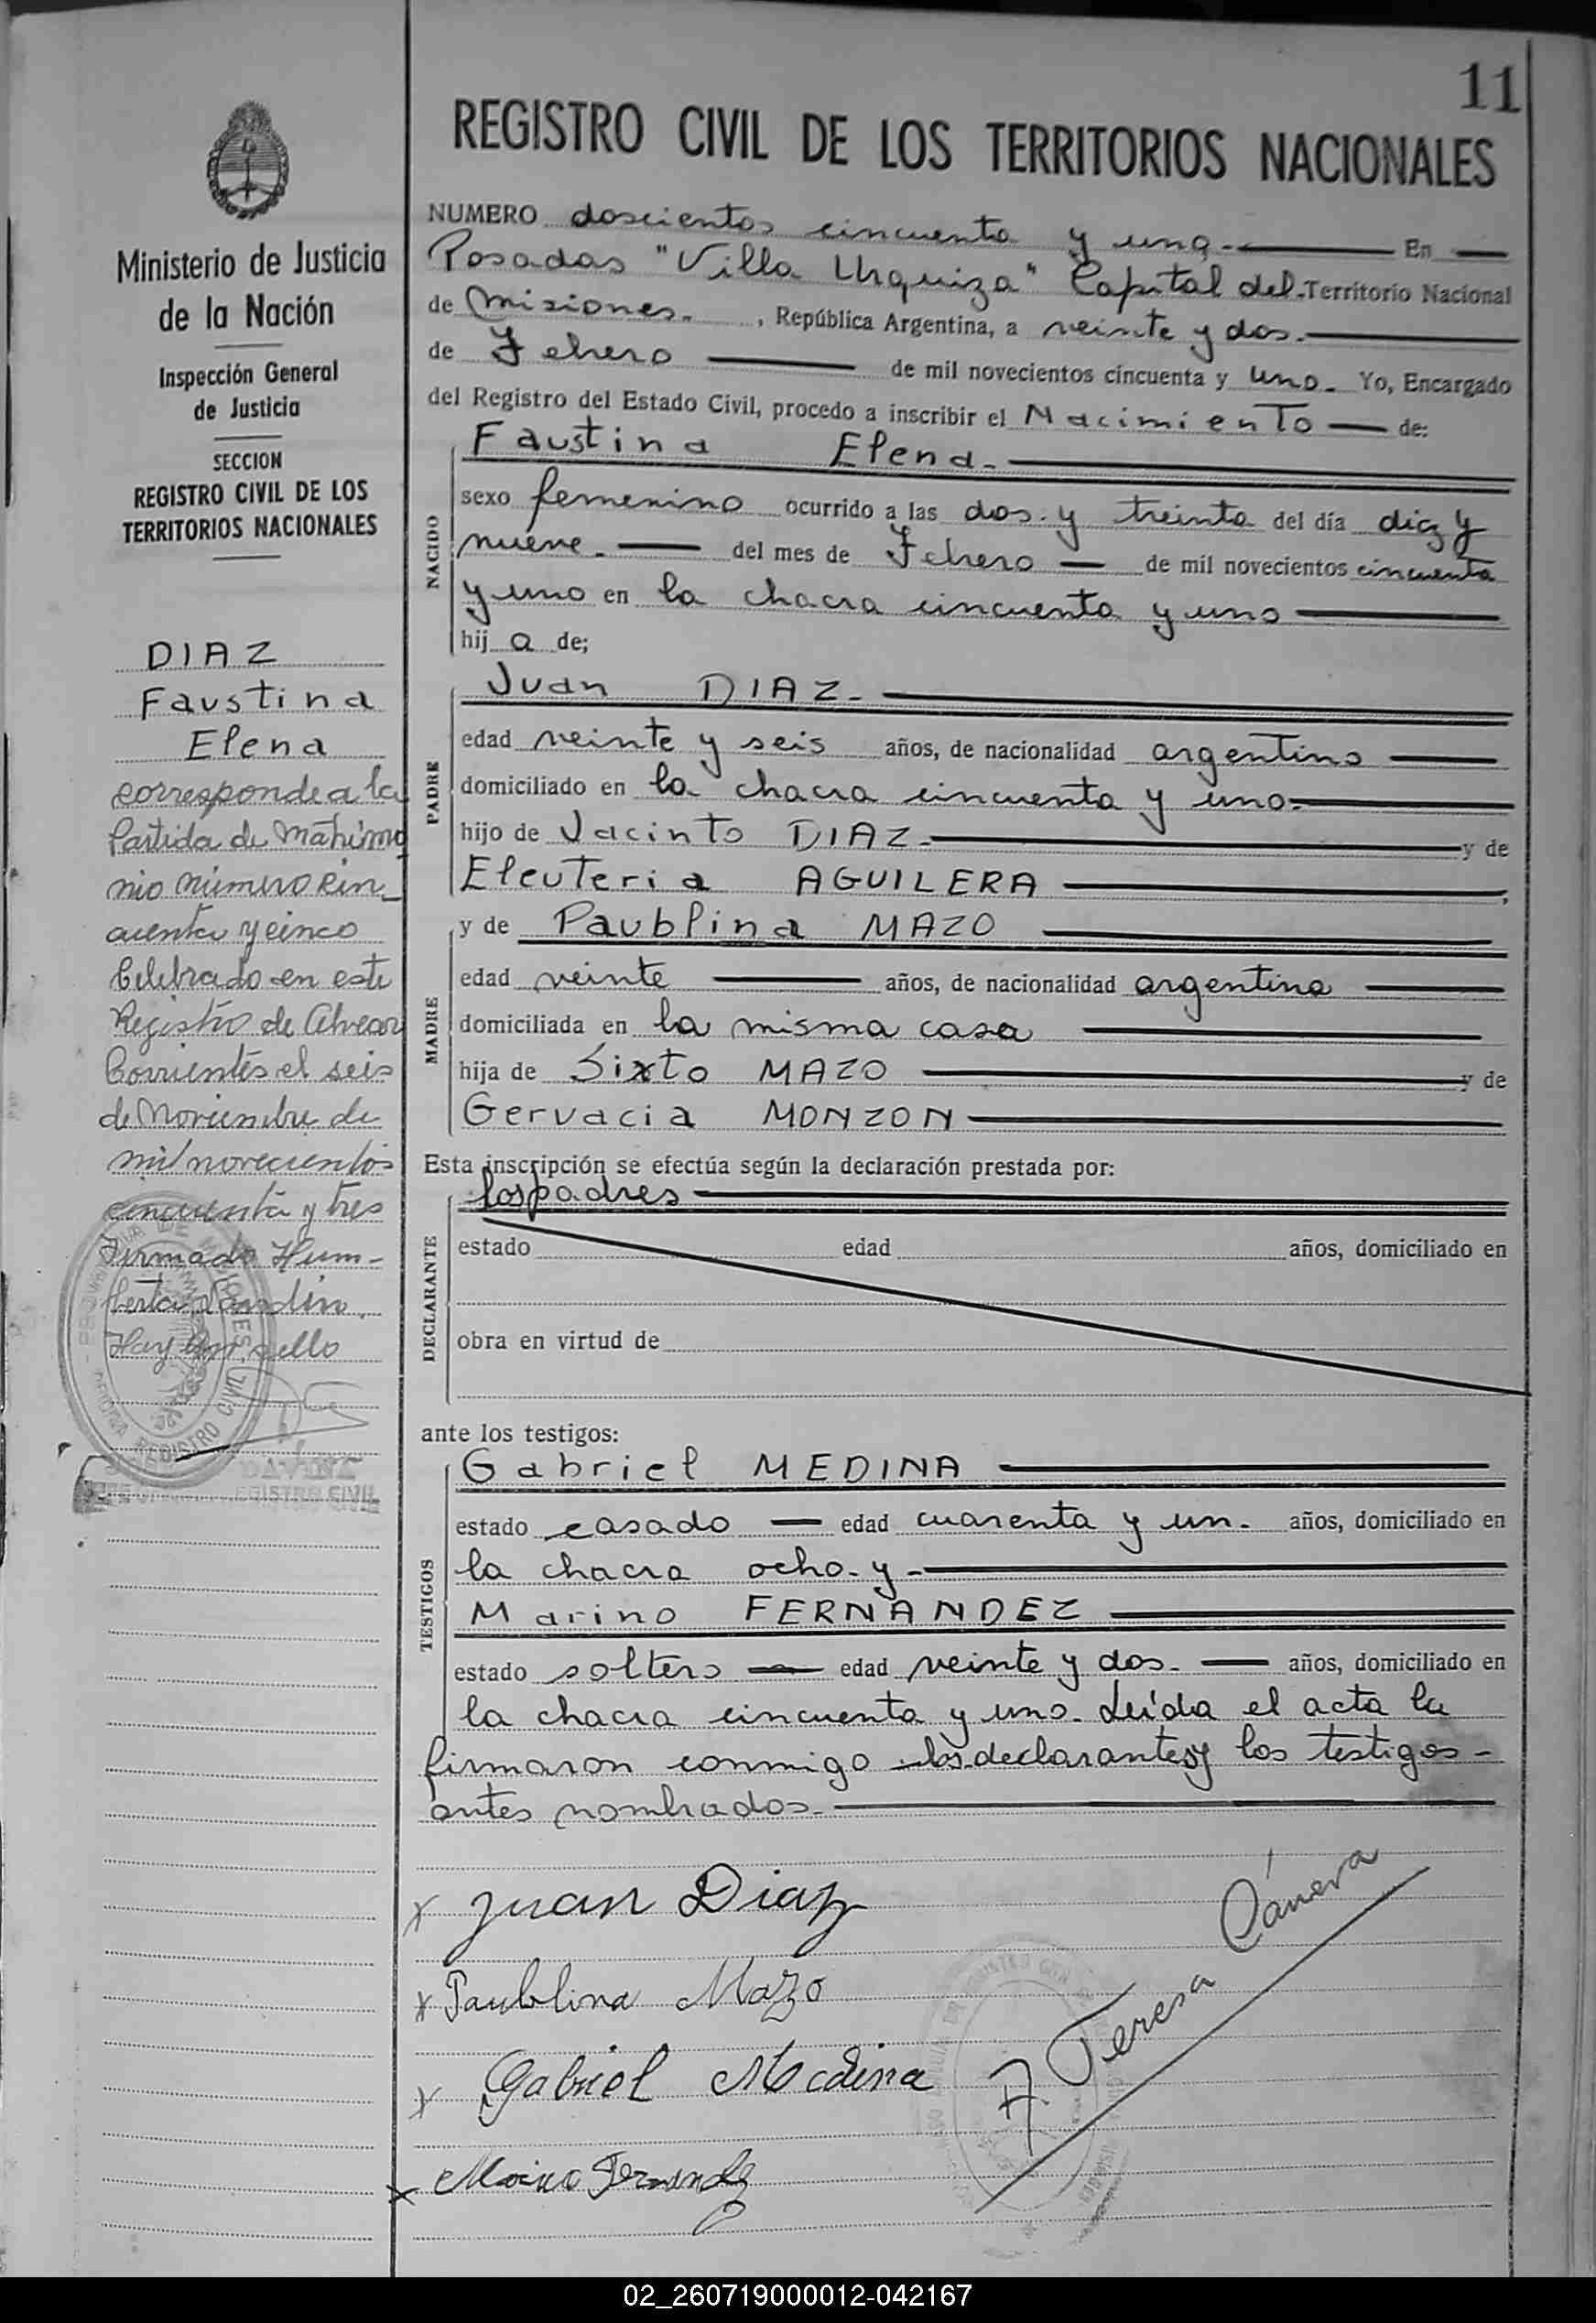 11
REGISTRO CIVIL DE LOS TERRITORIOS NACIONALES
Ministerio de Justicia
de la Nación
Inspección General
de Justicia
SECCION
REGISTRO CIVIL DE LOS
TERRITORIOS NACIONALES
DIAZ
Faustina
Elena
corresponde a la
Partida de Matrimo
nio número cin_
cuenta y cinco
Celebrado en este
Registro de Alvear
Corrientes el seis
de Noviembre de
mil novecientos
cincuenta y tres
Firmado Hum-
Hay un sello
REGISTRO CIVIL
NUMERO doscientos cincuenta y una.- En
Posadas "Villa Urquiza" Capital del Territorio Nacional
de Misiones. , República Argentina, a veinte y dos.
de Febrero de mil novecientos cincuenta y uno. Yo, Encargado
del Registro del Estado Civil, procedo a inscribir el Nacimiento de:
NACIDO
Faustina Elena.
sexo femenino ocurrido a las dos y treinta del día diez y
nueve. del mes de Febrero de mil novecientos cincuenta
y uno en la chacra cincuenta y uno
hij a de;
PADRE
Juan DIAZ.
edad veinte y seis años, de nacionalidad argentino
domiciliado en la chacra cincuenta y uno.
hijo de Jacinto DIAZ. y de
Eleuteria AGUILERA ;
MADRE
y de Paublina MAZO
edad veinte años, de nacionalidad argentina
domiciliada en la misma casa
hija de Sixto MAZO y de
Gervacia MONZON
Esta inscripción se efectúa según la declaración prestada por:
DECLARANTE
los padres
estado edad años, domiciliado en
obra en virtud de
ante los testigos:
TESTIGOS
Gabriel MEDINA
estado casado edad cuarenta y un. años, domiciliado en
la chacra ocho. y
Marino FERNANDEZ
estado soltero edad veinte y dos. años, domiciliado en
la chacra cincuenta y uno. Leída el acta la
firmaron conmigo los declarantes y los testigos
antes nombrados.
x Juan Diaz
x Paublina Mazo
x Gabriel Medina
x Marino Fernandez
A. Teresa Cánera
02_260719000012-042167